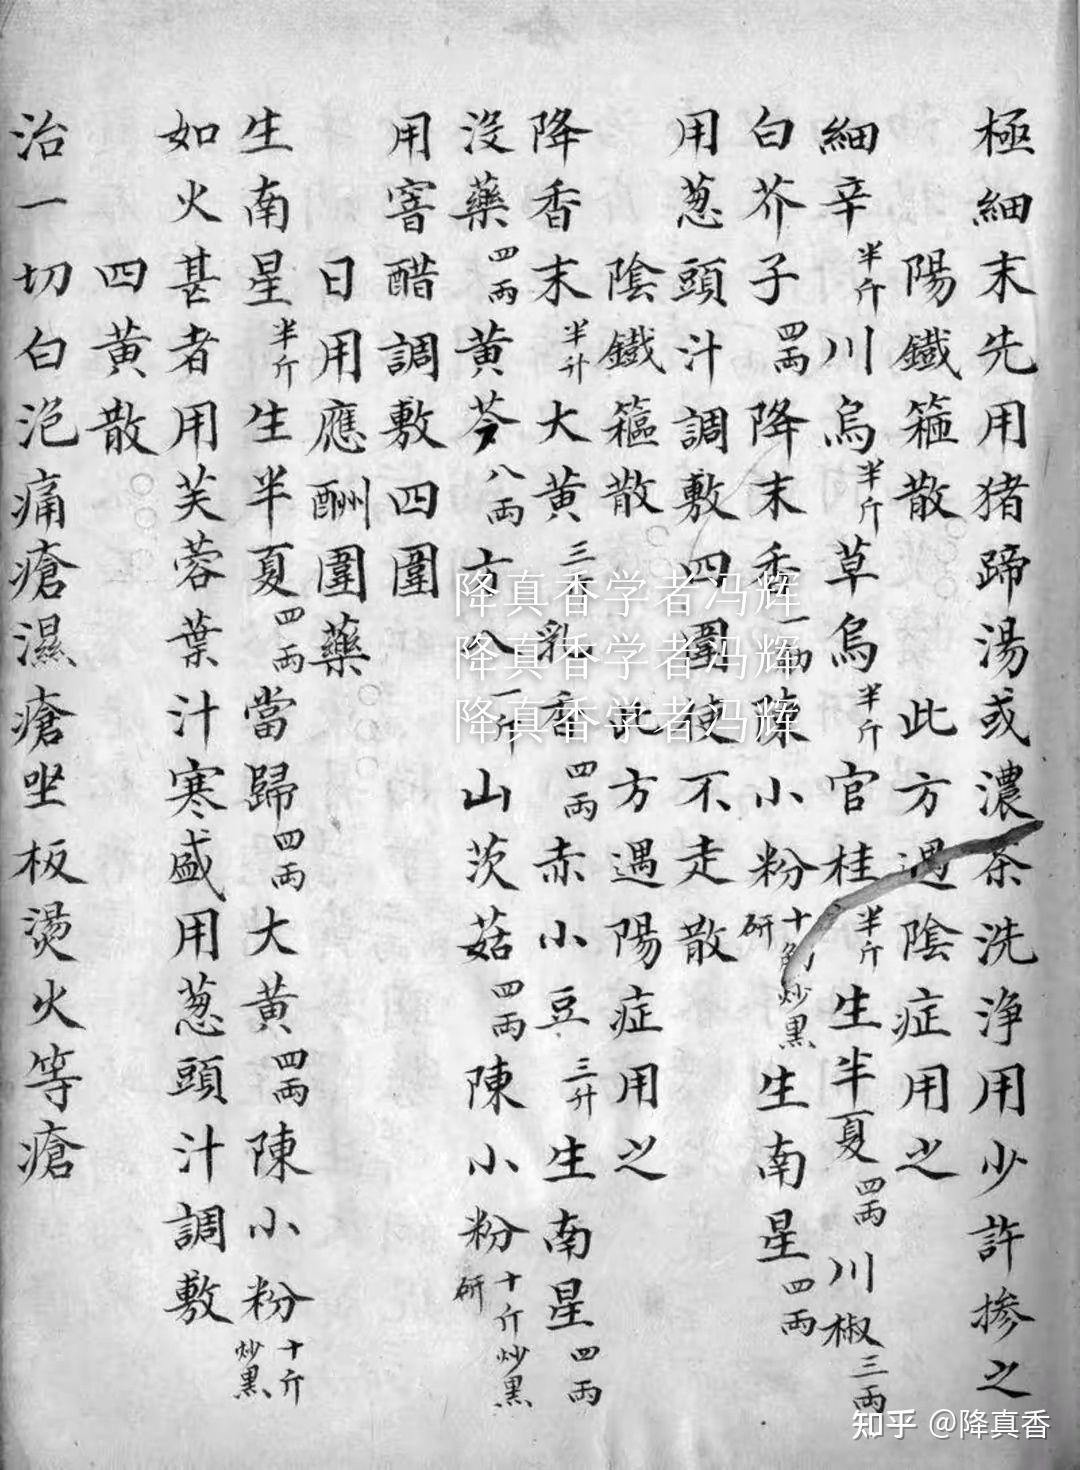 極細末先用猪蹄湯或濃茶洗淨用少許掺之
陽鐵箍散 此方遇陰症用之
細辛半斤川烏半斤草烏半斤官桂半斤生半夏四兩川椒三兩
白芥子四兩降末香一兩陳小粉十斤炒黑研生南星四兩
用葱頭汁調敷四圍使不走散
陰鐵箍散 此方遇陽症用之
降香末半升大黄三斤乳香四兩赤小豆三升生南星四兩
沒藥四兩黄芩八兩方八一斤山茨菇四兩陳小粉十斤炒黑研
用窨醋調敷四圍
日用應酬圍藥
生南星半斤生半夏四兩當歸四兩大黄四兩陳小粉十斤炒黑
如火甚者用芙蓉葉汁寒盛用葱頭汁調敷
四黄散
治一切白泡痛瘡濕瘡坐板燙火等瘡
降真香学者冯辉
降真香学者冯辉
降真香学者冯辉
知乎 @降真香